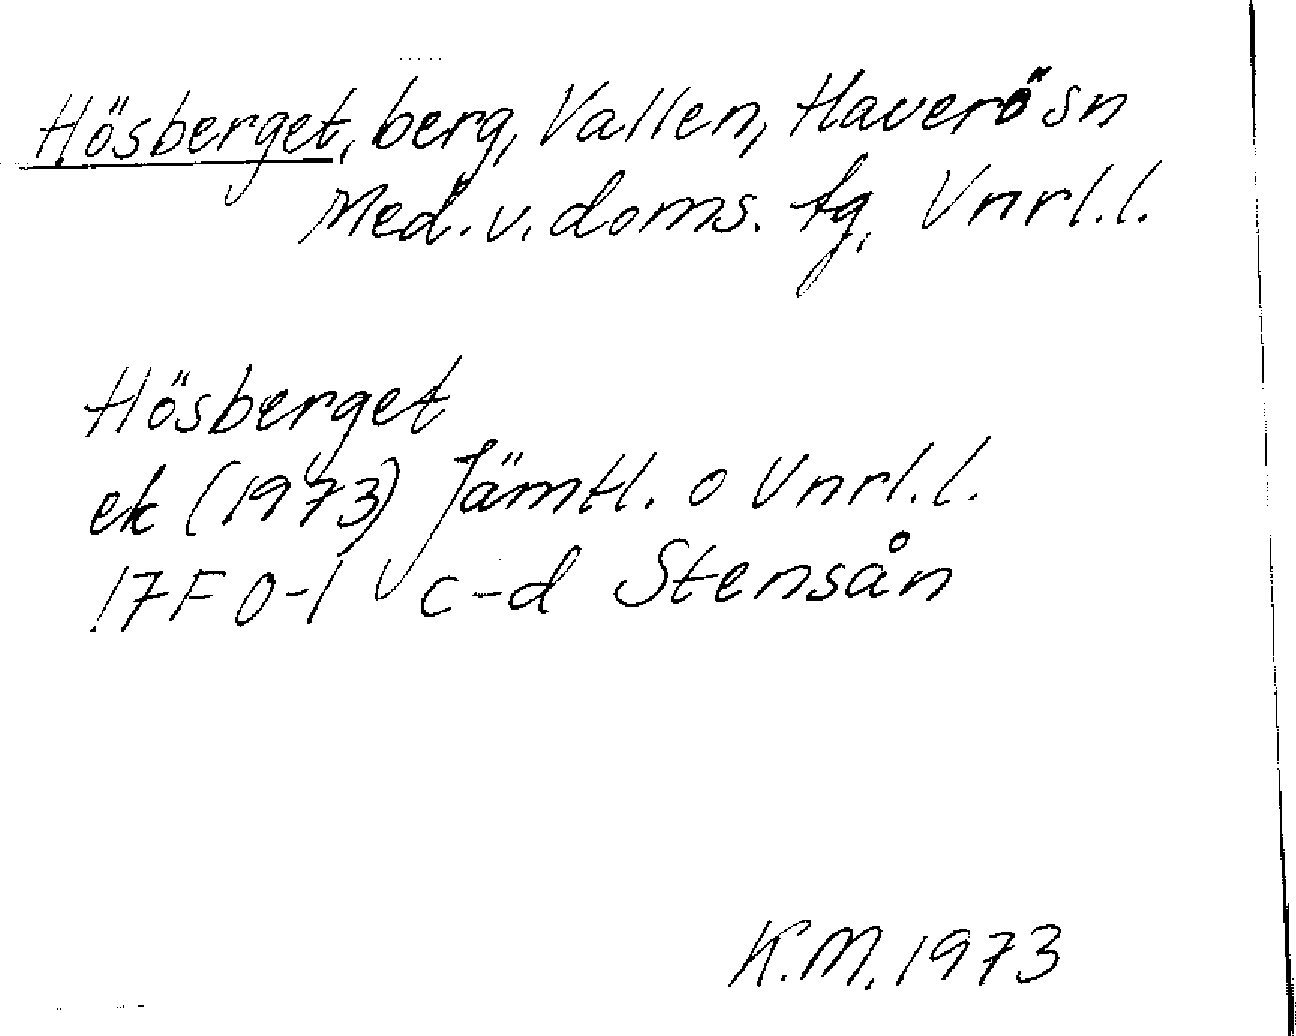 Hösberget, berg, Vallen, Haverö sn
Med. v. doms. tg, Vnrl.l.
Hösberget
ek (1973) Jämtl. o Vnrl.l.
17F 0-1 c-d Stensån
K.M. 1973